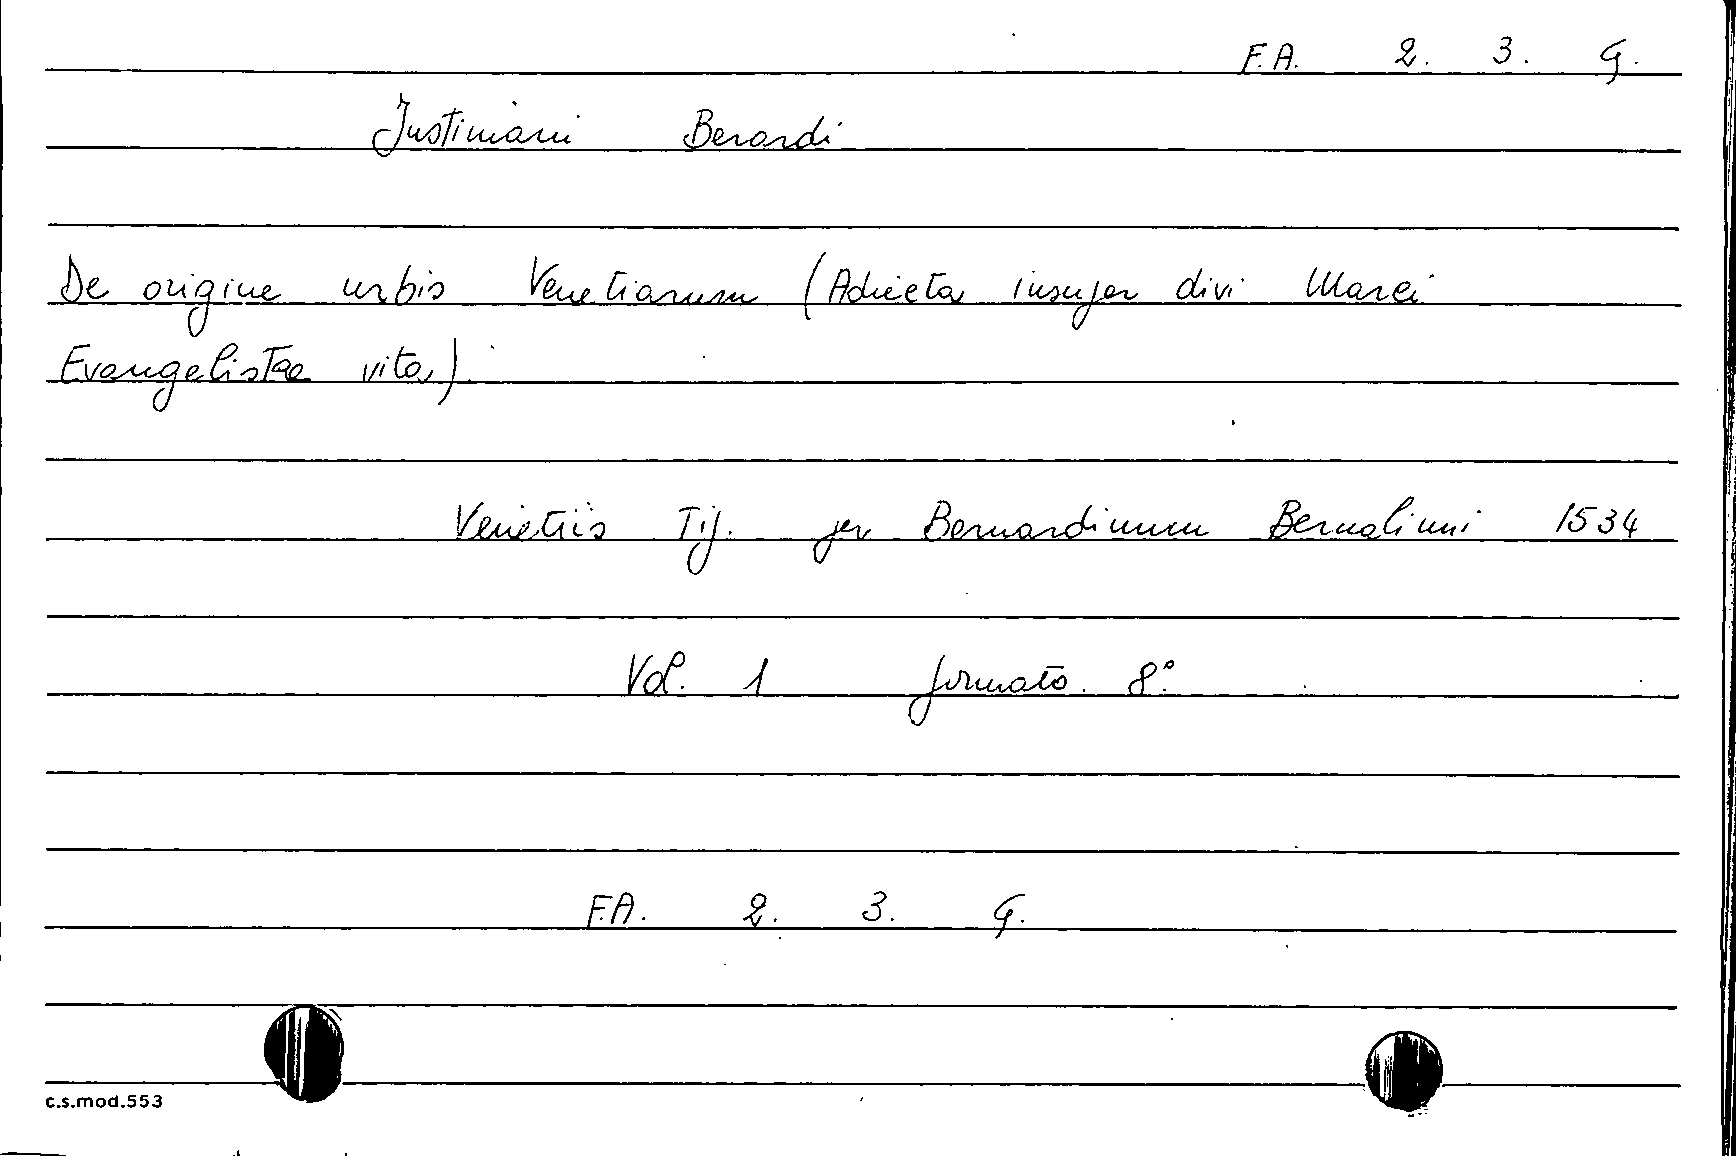 F.A. 2. 3. G.
Justiniani Berardi
De origine urbis Venetiarum (Adiecta insuper divi Marci
Evangelistae vita)
Venetiis Tip. per Bernardinum Bernalinni 1534
Vol. 1 formato 8°
F.A. 2. 3. G.
c.s.mod.553